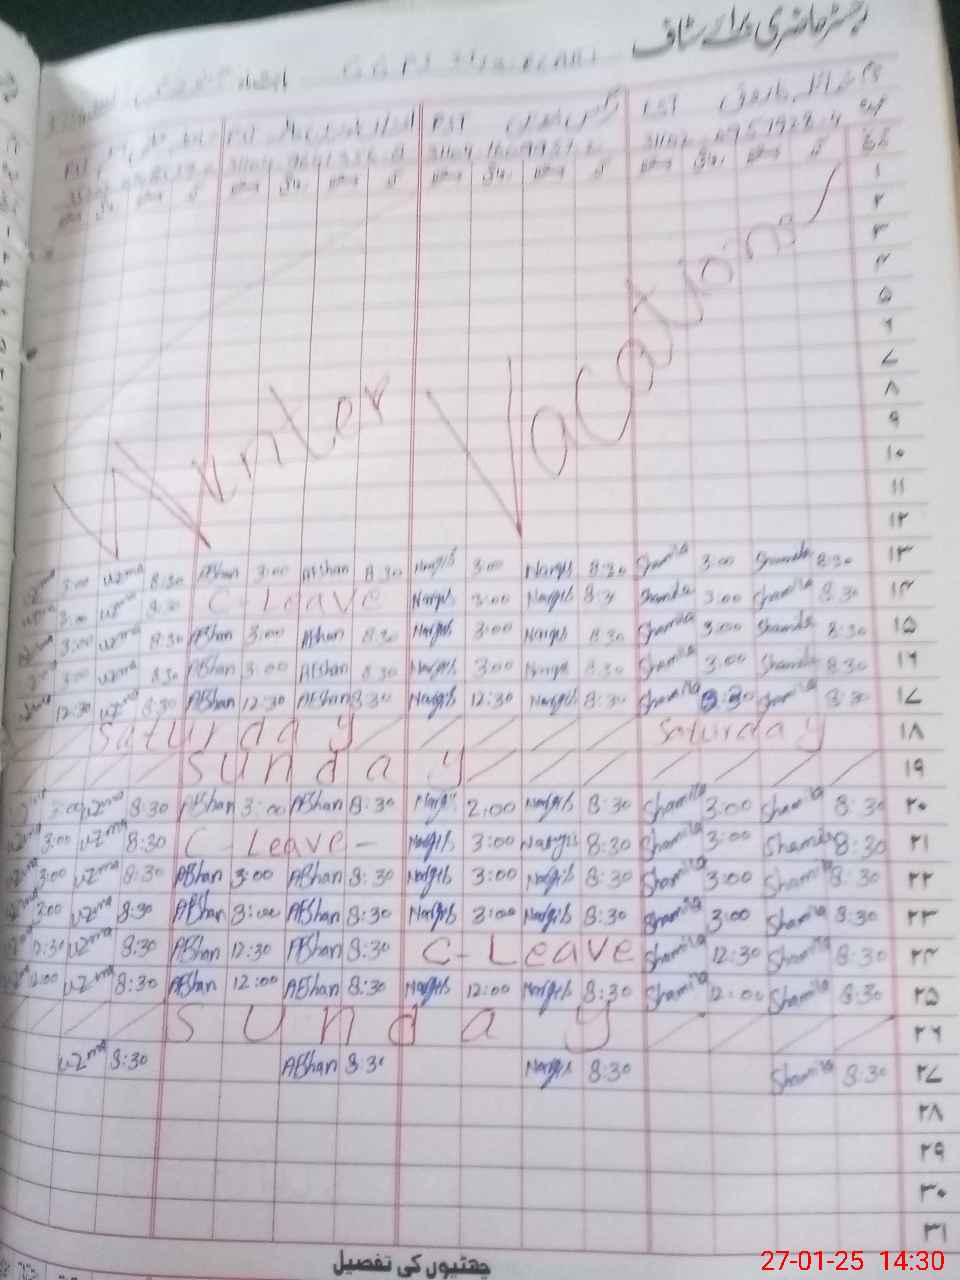 رجسٹر حاضری برائے سٹاف
PST PST
۱
۲
۳
۴
۵
۶
۷
۸
۹
۱۰
۱۱
۱۲
Winter Vacations
uzma 3:00 uzma 8:30 Afshan 3:00 Afshan 8:30 Nargis 3:00 Nargis 8:30 Shamila 3:00 Shamila 8:30 ۱۳
uzma 3:00 uzma 8:30 C-Leave Nargis 3:00 Nargis 8:30 Shamila 3:00 Shamila 8:30 ۱۴
3:00 uzma 8:30 Afshan 3:00 Afshan 8:30 Nargis 3:00 Nargis 8:30 Shamila 3:00 Shamila 8:30 ۱۵
3:00 uzma 8:30 Afshan 3:00 Afshan 8:30 Nargis 3:00 Nargis 8:30 Shamila 3:00 Shamila 8:30 ۱۶
12:30 uzma 8:30 Afshan 12:30 Afshan 8:30 Nargis 12:30 Nargis 8:30 Shamila Shamila 8:30 ۱۷
Saturday Saturday ۱۸
Sunday ۱۹
3:00 uzma 8:30 Afshan 3:00 Afshan 8:30 Nargis 2:00 Nargis 8:30 Shamila 3:00 Shamila 8:30 ۲۰
3:00 uzma 8:30 C-Leave - Nargis 3:00 Nargis 8:30 Shamila 3:00 Shamila 8:30 ۲۱
3:00 uzma 8:30 Afshan 3:00 Afshan 8:30 Nargis 3:00 Nargis 8:30 Shamila 3:00 Shamila 8:30 ۲۲
3:00 uzma 8:30 Afshan 3:00 Afshan 8:30 Nargis 3:00 Nargis 8:30 Shamila 3:00 Shamila 8:30 ۲۳
12:30 uzma 8:30 Afshan 12:30 Afshan 8:30 C-Leave Shamila 12:30 Shamila 8:30 ۲۴
12:00 uzma 8:30 Afshan 12:00 Afshan 8:30 Nargis 12:00 Nargis 8:30 Shamila 12:00 Shamila 8:30 ۲۵
Sunday ۲۶
uzma 8:30 Afshan 8:30 Nargis 8:30 Shamila 8:30 ۲۷
۲۸
۲۹
۳۰
۳۱
چھٹیوں کی تفصیل
27-01-25 14:30